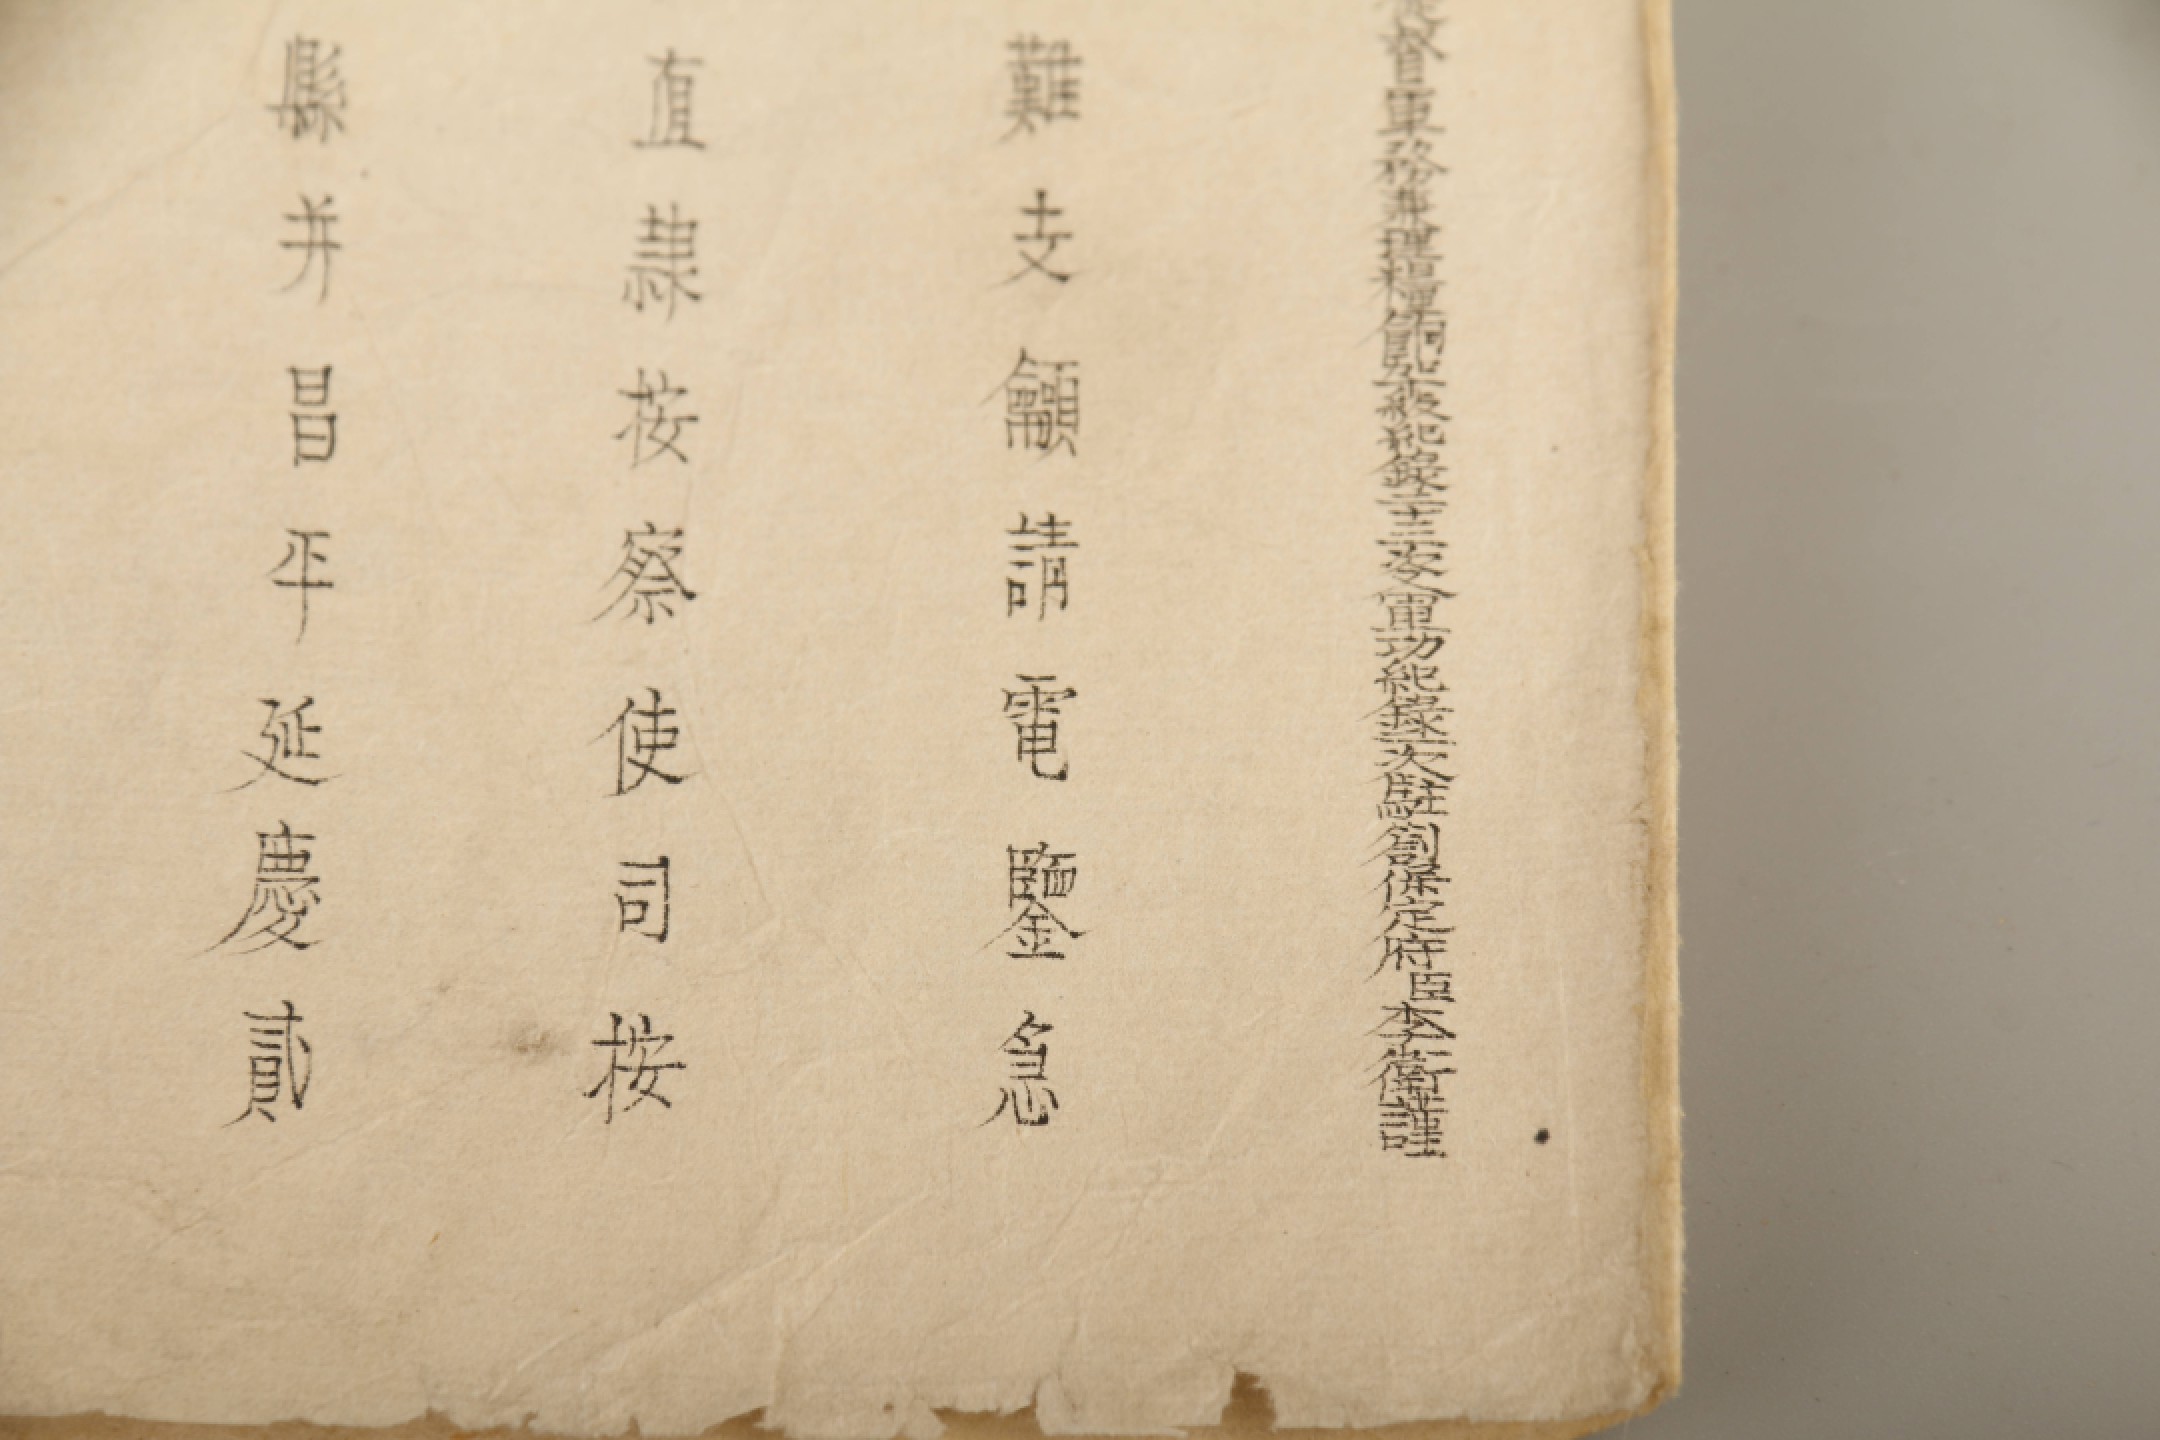 督軍務兼理糧餉紀十級紀錄二十三次又軍功紀錄二次駐劄保定府臣李衛謹
難支籲請電鑒急
直隷按察使司按
縣并昌平延慶貳